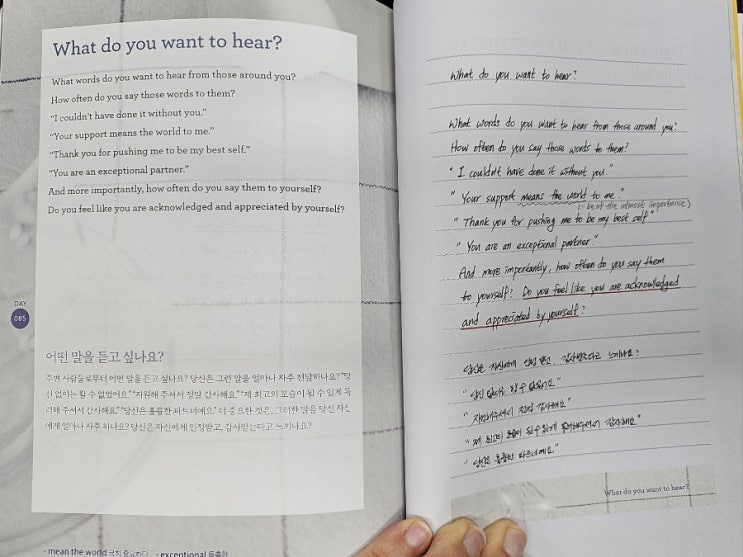 What do you want to hear?
What words do you want to hear from those around you?
How often do you say those words to them?
“I couldn’t have done it without you.”
“Your support means the world to me.”
“Thank you for pushing me to be my best self.”
“You are an exceptional partner.”
And more importantly, how often do you say them to yourself?
Do you feel like you are acknowledged and appreciated by yourself?
DAY
085
어떤 말을 듣고 싶나요?
주변 사람들로부터 어떤 말을 듣고 싶나요? 당신은 그런 말을 얼마나 자주 전달하나요? “당
신 없이는 할 수 없었어요.” “지원해 주셔서 정말 감사해요.” “제 최고의 모습이 될 수 있게 독
려해 주셔서 감사해요.” “당신은 훌륭한 파트너예요.” 더 중요한 것은, 그러한 말을 당신 자신
에게 얼마나 자주 하나요? 당신은 자신에게 인정받고, 감사받는다고 느끼나요?
· mean the world 극히 중요하다 · exceptional 특출한
What do you want to hear?
What words do you want to hear from those around you?
How often do you say those words to them?
" I couldn't have done it without you."
" Your support means the world to me."
(= be of the utmost importance)
" Thank you for pushing me to be my best self"
" You are an exceptional partner."
And more importantly, how often do you say them
to yourself? Do you feel like you are acknowledged
and appreciated by yourself?
당신은 자신에게 인정 받고, 감사받는다고 느끼나요?
" 당신 없이는 할 수 없었어요"
" 지원해주셔서 정말 감사해요"
" 제 최고의 모습이 될 수 있게 독려해주셔서 감사해요"
" 당신은 훌륭한 파트너예요"
What do you want to hear?